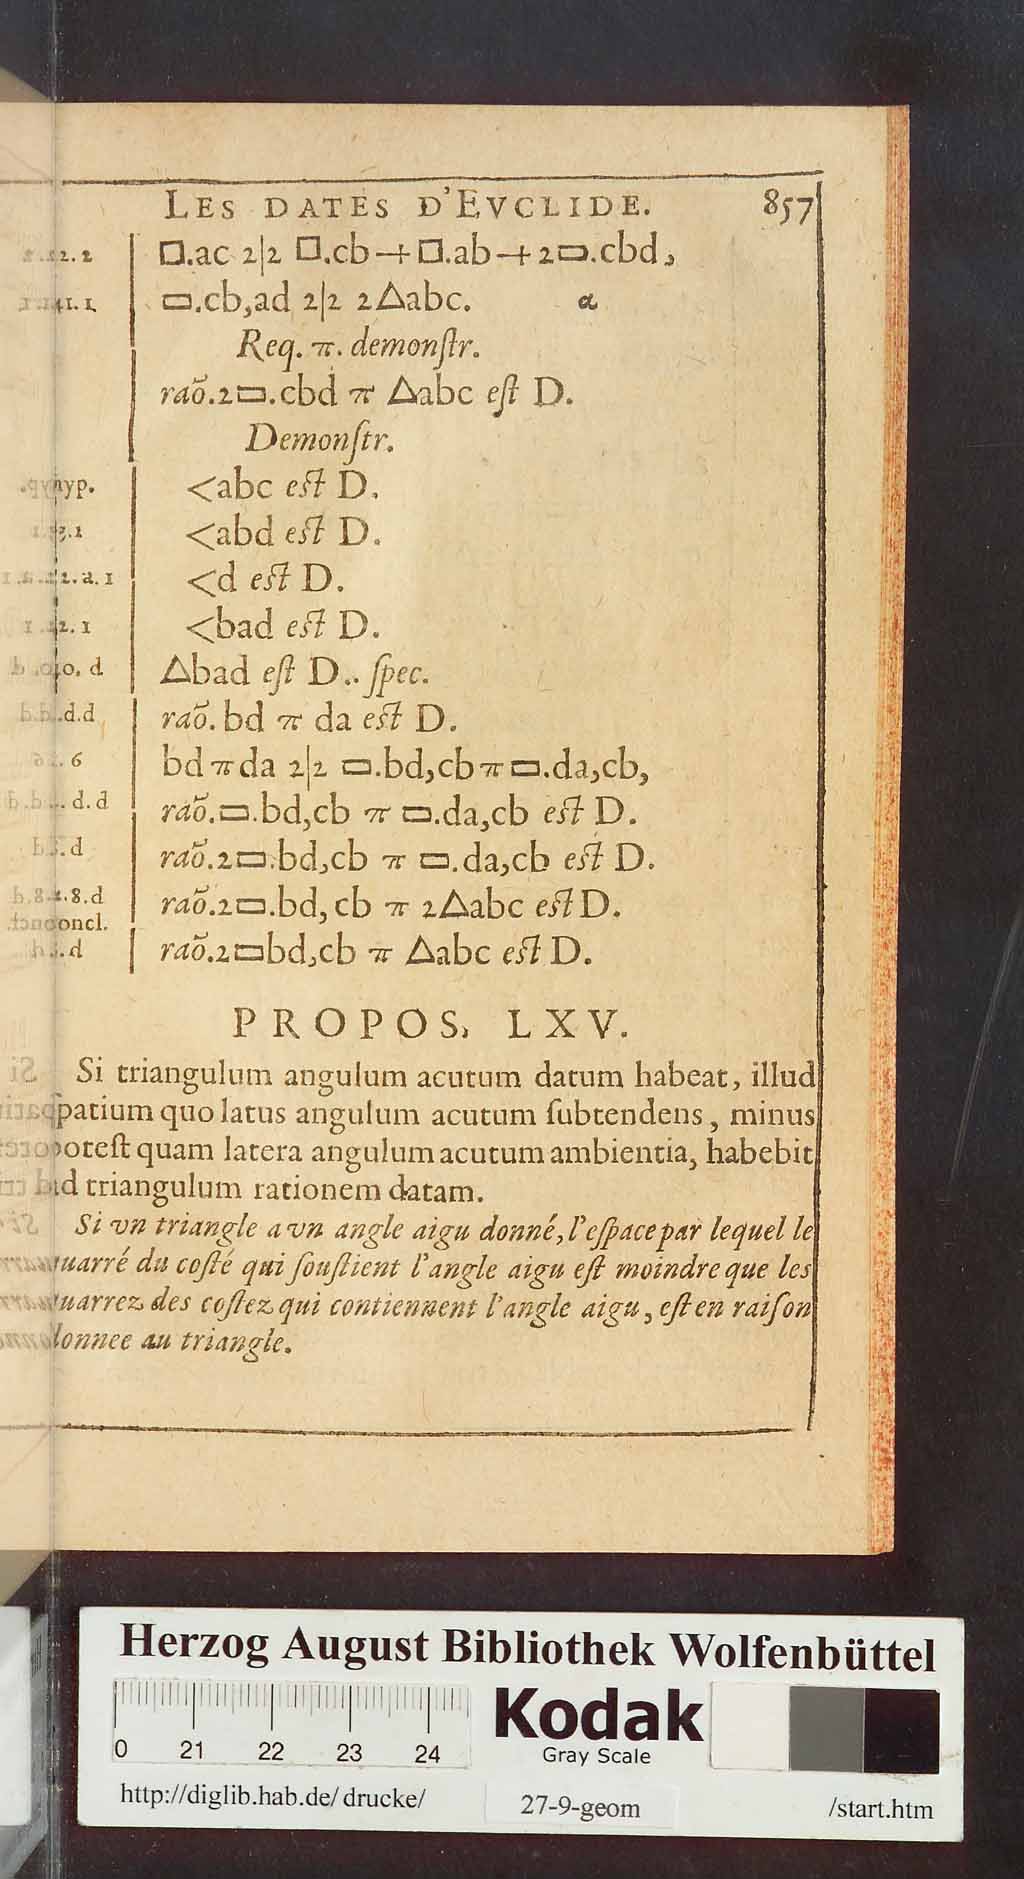 LES DATES D'EVCLIDE. 857
□.ac 2|2 □.cb + □.ab + 2▭.cbd,
▭.cb,ad 2|2 2△abc. α
Req. π. demonſtr.
raõ.2▭.cbd π △abc eſt D.
Demonſtr.
hyp. <abc eſt D.
<abd eſt D.
<d eſt D.
<bad eſt D.
△bad eſt D.. ſpec.
raõ. bd π da eſt D.
bd π da 2|2 ▭.bd,cb π ▭.da,cb,
raõ.▭.bd,cb π ▭.da,cb eſt D.
raõ.2▭.bd,cb π ▭.da,cb eſt D.
raõ.2▭.bd, cb π 2△abc eſt D.
raõ.2▭bd,cb π △abc eſt D.
PROPOS. LXV.
Si triangulum angulum acutum datum habeat, illud
ſpatium quo latus angulum acutum ſubtendens, minus
poteſt quam latera angulum acutum ambientia, habebit
ad triangulum rationem datam.
Si vn triangle a vn angle aigu donné, l'eſpace par lequel le
quarré du coſté qui ſouſtient l'angle aigu eſt moindre que les
quarrez des coſtez qui contiennent l'angle aigu, eſt en raiſon
donnee au triangle.
Herzog August Bibliothek Wolfenbüttel
0 21 22 23 24
Kodak
Gray Scale
http://diglib.hab.de/drucke/ 27-9-geom /start.htm